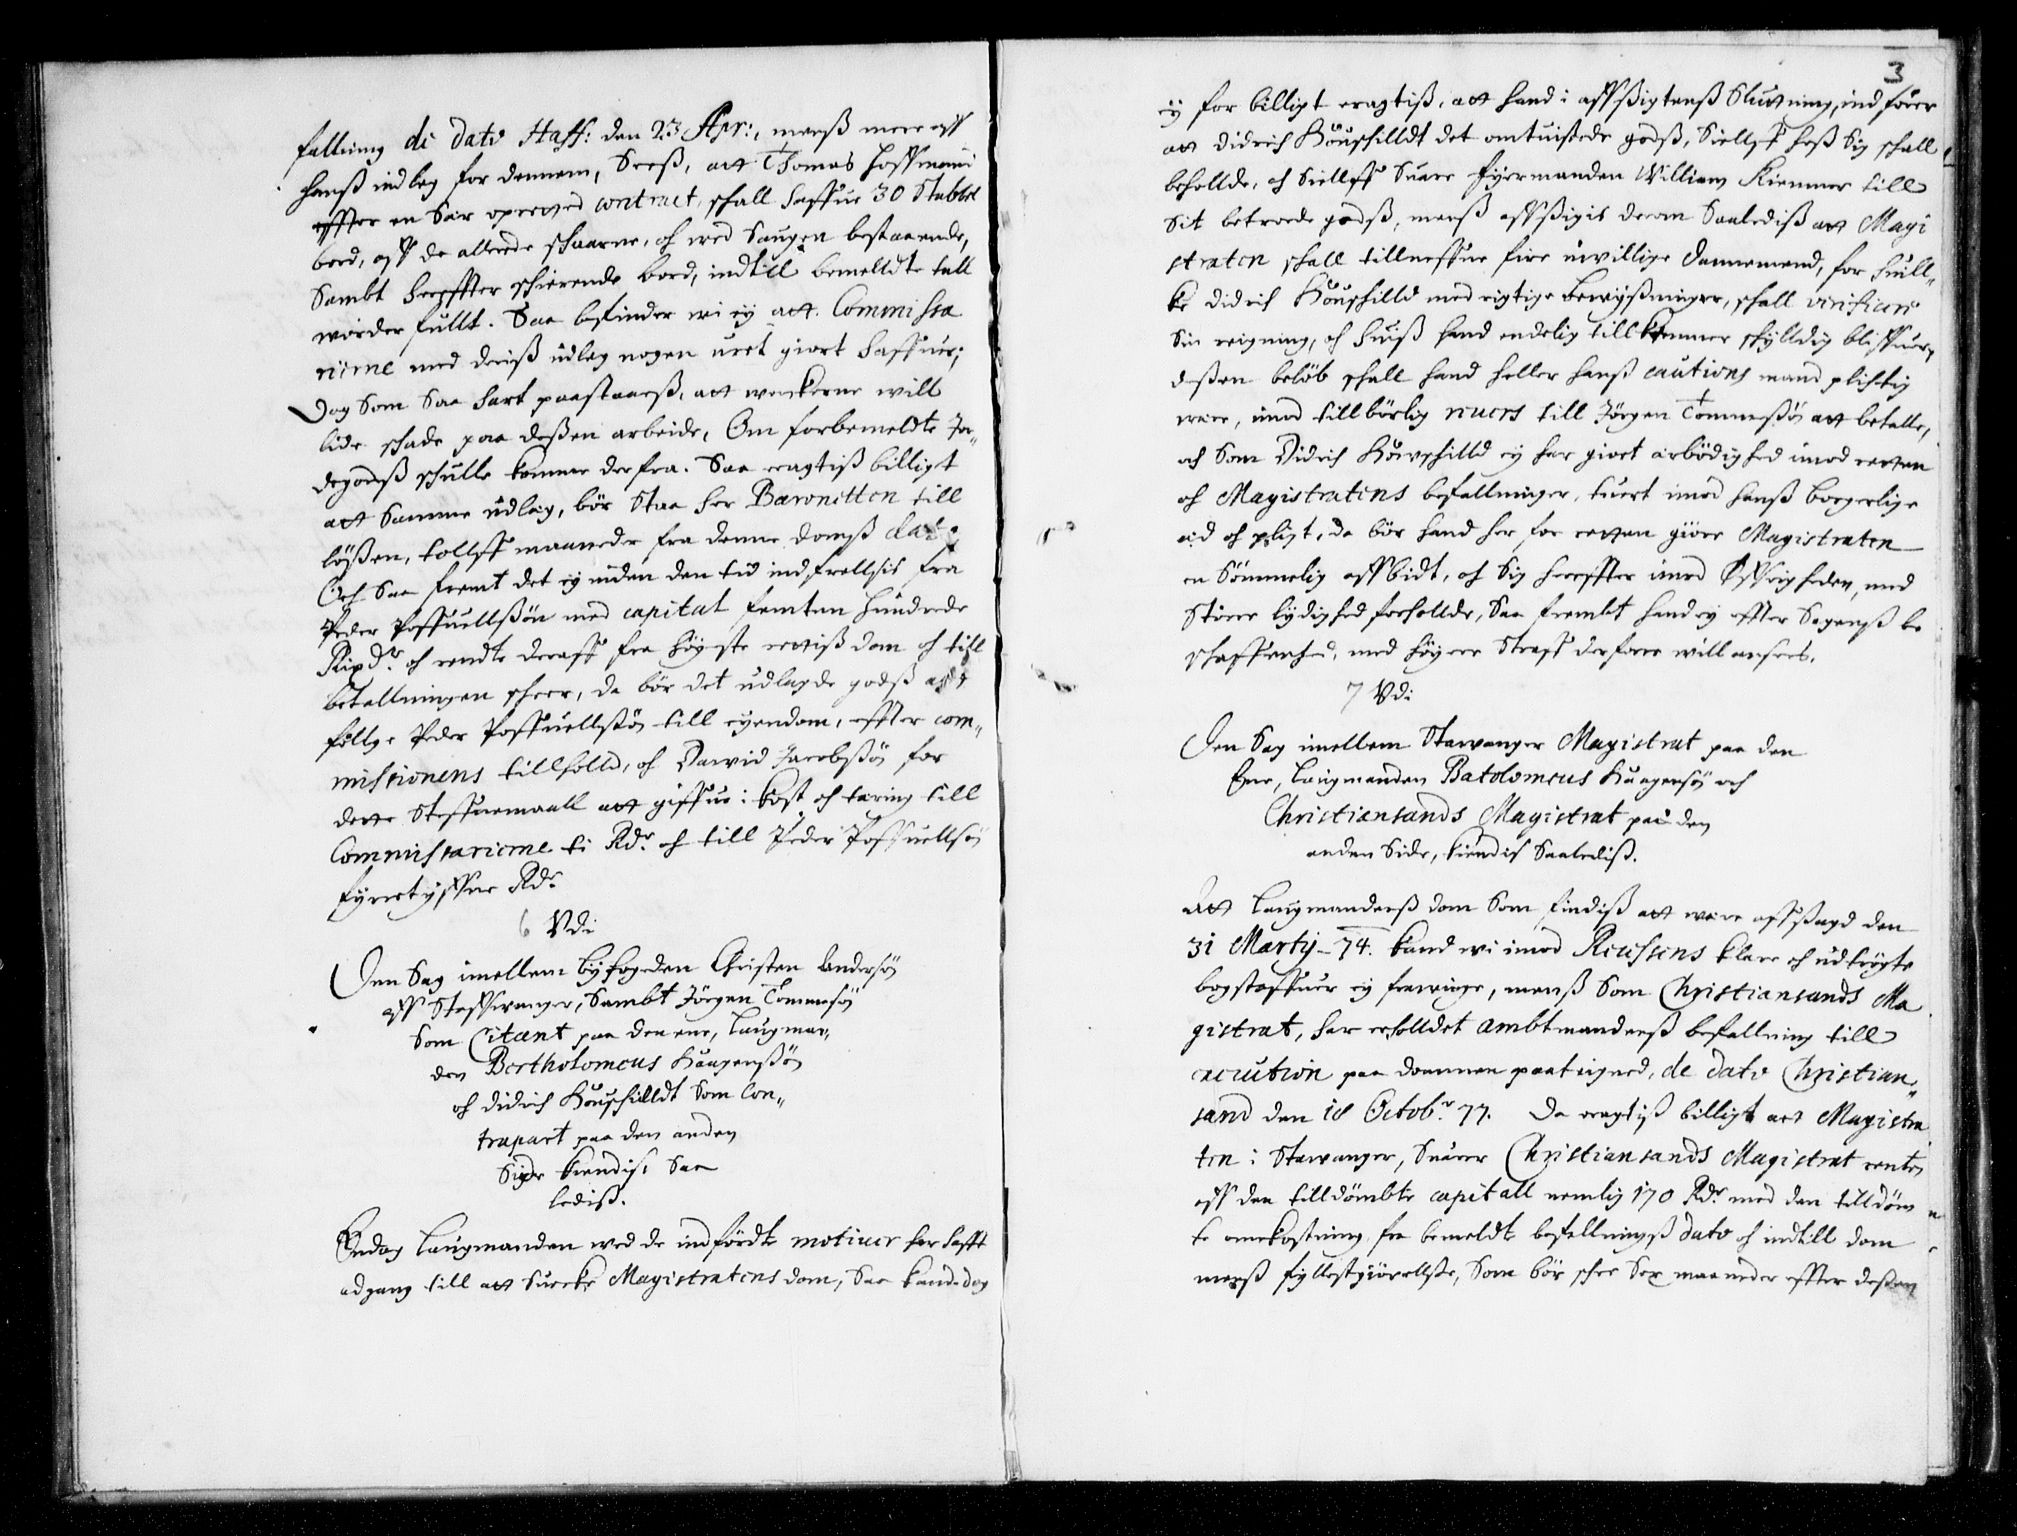 fallning di dato Haff: den 23 Apr:, menß mere aff
hanß indleg for dennem, Seeß, att Thomas Hoffmand
effter en Sær opretted contract, schall haffue 30 Stabbel
bord, aff de allerede schaarne, och ved Saugen bestaaende,
Sambt hereffter schierende bord, indtill bemelldte tall
worder fullt. Saa befinder wi ej att Commissa
rierne med deriß udleg nogen uret giort haffuer;
Dog Som Saa hart paastaaeß, att werckerne will
lide schade paa deßen arbeide, Om forbemeldte Jor„
degodß schulle komme der fra. Saa eragtiß billigt
att Samme udleg, bör Staa her Baronetten till
lößen, tollff maaneder fra denne domß dato
Och Saa fremt det ej inden den tid indfrellsis fra
Peder Poffuellßön med capital femten hundrede
Rixdr och rendte deraff fra höyeste rettiß dom och till
betallningen scheer, da bör det udlagde godß att
föllge Peder Poffuellßön till eyendom, effter com„
missionens tillholld, och Dawid Jacobßön for
dette Steffnemaall att giffue i kost och tæring till
Commissarierne ti Rdr och till Peder Poffuellsön
fyrretyffue Rdr
6 Vdi
Den Sag imellem byfogeden Christen Andersön
aff Staffwanger, Sambt Jörgen Tommesön
Som Citant paa den ene, Laugman„
den Bertholomeus Haagenßön
och Didrich Kouschilldt Som Con„
trapart paa den anden
Side kiendiß Saa
lediß.
Endog Laugmanden wed de indfördte motiver har hafft
adgang till att Suecke Magistratens dom, Saa kand dog
3
ej for billigt eragtiß, att hand i affßigtenß Sluttning, indförer
att Didrich Kouschilldt det omtuistede godß, Siellff hoß Sig schall
behollde, och Siellff Suare Styermanden William Kiemmer till
Sit betroede godß, menß affßigis derom Saalediß att Magi
straten schall tillneffne fire uwillige Dannemend, for huill„
ke Didrich Kouschilld med rigtige bewyßninger, schall verificere
Sin reigning, och huiß hand endelig till kommer schylldig bliffuer,
deßen belöb schall hand heller hanß cautions mand plichtig
were, imod tillbörlig revers till Jörgen Tommesßön att betalle,
och Som Didrich Kouschilld ej har giort ærbödighed imod retten
och Magistratens befallninger, tuert imod hanß borgerlige
æd och pligt, da bör hand her for retten giöre Magistraten
en Sömmelig affbidt, och Sig hereffter imod Öffrigheden, med
Större lydighed forhollde, Saa frembt hand ej effter Sagenß be
schaffenhed, med höyere Straff derfore will ansees.
7 Vdi
Den Sag imellem Stawanger Magistrat paa den
Ene, Laugmanden Batolomeus Haagensön och
Christiansands Magistrat paa den
anden Side, kiendis Saalediß.
Att Laugmandenß dom Som findiß att were affsagd den
31 Martij - 74. kand wi imod Recessens klare och udtrögte
bogstaffuer ej frawige, menß Som Christiansands Ma
gistrat, har erholldet Ambtmandenß befallning till
execution paa dommen paateigned, de dato Christian„
sand den 18 Octobr 77. Da eragtiß billigt att Magistra
ten i Stawanger, Suarer Christiansands Magistrat renten
aff den tilldömbte capitall nemlig 170 Rdr med den tilldöm
te omkostning fra bemeldte befallningß dato och indtill dom
menß fyllestgiörellße, Som bör schee Sex maaneder effter deßen